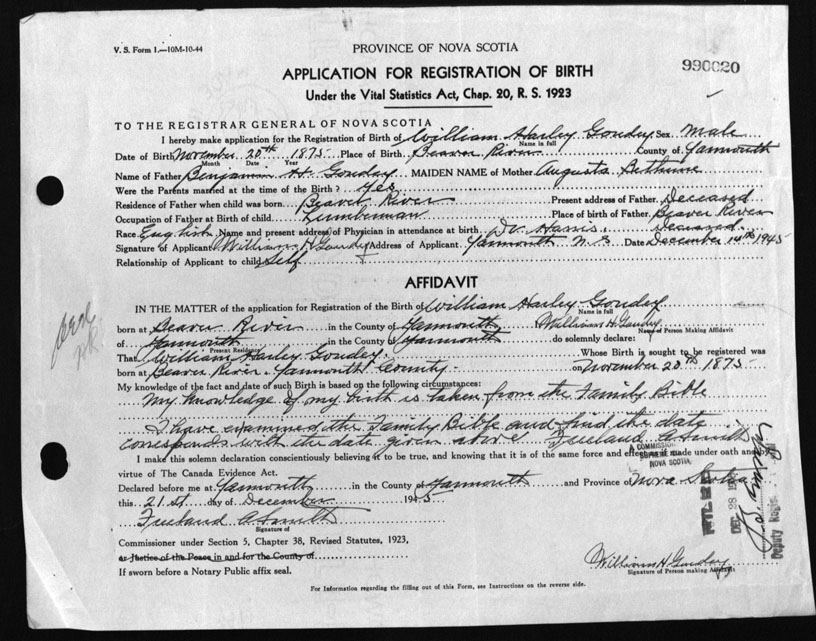 V. S. Form 1.—10M-10-44
PROVINCE OF NOVA SCOTIA
990020
APPLICATION FOR REGISTRATION OF BIRTH
Under the Vital Statistics Act, Chap. 20, R. S. 1923
TO THE REGISTRAR GENERAL OF NOVA SCOTIA
I hereby make application for the Registration of Birth of William Harley Gouday Sex Male
Name in full
Date of Birth November 20th 1875 Place of Birth Beaver River County of Yarmouth
Month Date Year
Name of Father Benjamin H. Gouday MAIDEN NAME of Mother Augusta Bethune
Were the Parents married at the time of the Birth? Yes
Residence of Father when child was born Beaver River Present address of Father Deceased
Occupation of Father at Birth of child Lumberman Place of birth of Father Beaver River
Race English Name and present address of Physician in attendance at birth Dr. Harris. Deceased.
Signature of Applicant William H Gouday Address of Applicant Yarmouth N.S. Date December 1945
Relationship of Applicant to child Self
AFFIDAVIT
IN THE MATTER of the application for Registration of the Birth of William Harley Gouday
Name in full
born at Beaver River in the County of Yarmouth William H. Gouday
Name of Person Making Affidavit
of Yarmouth in the County of Yarmouth do solemnly declare:
Present Residence
That William Harley Gouday. Whose Birth is sought to be registered was
born at Beaver River. Yarmouth County. on November 20th 1875
My knowledge of the fact and date of such Birth is based on the following circumstances:
My knowledge of my birth is taken from the Family Bible
I have examined the Family Bible and find the date
corresponds with the date given above Freeland A Smith
A COMMISSIONER
SUPREME
NOVA SCOTIA
I make this solemn declaration conscientiously believing it to be true, and knowing that it is of the same force and effect as if made under oath and by
virtue of The Canada Evidence Act.
Declared before me at Yarmouth in the County of Yarmouth and Province of Nova Scotia
this 21st day of December 1945
Freeland A Smith
Signature of
Commissioner under Section 5, Chapter 38, Revised Statutes, 1923,
or Justice of the Peace in and for the County of
If sworn before a Notary Public affix seal.
DEC 28
Deputy
William H Gouday
Signature of Person making Affidavit
For Information regarding the filling out of this Form, see Instructions on the reverse side.